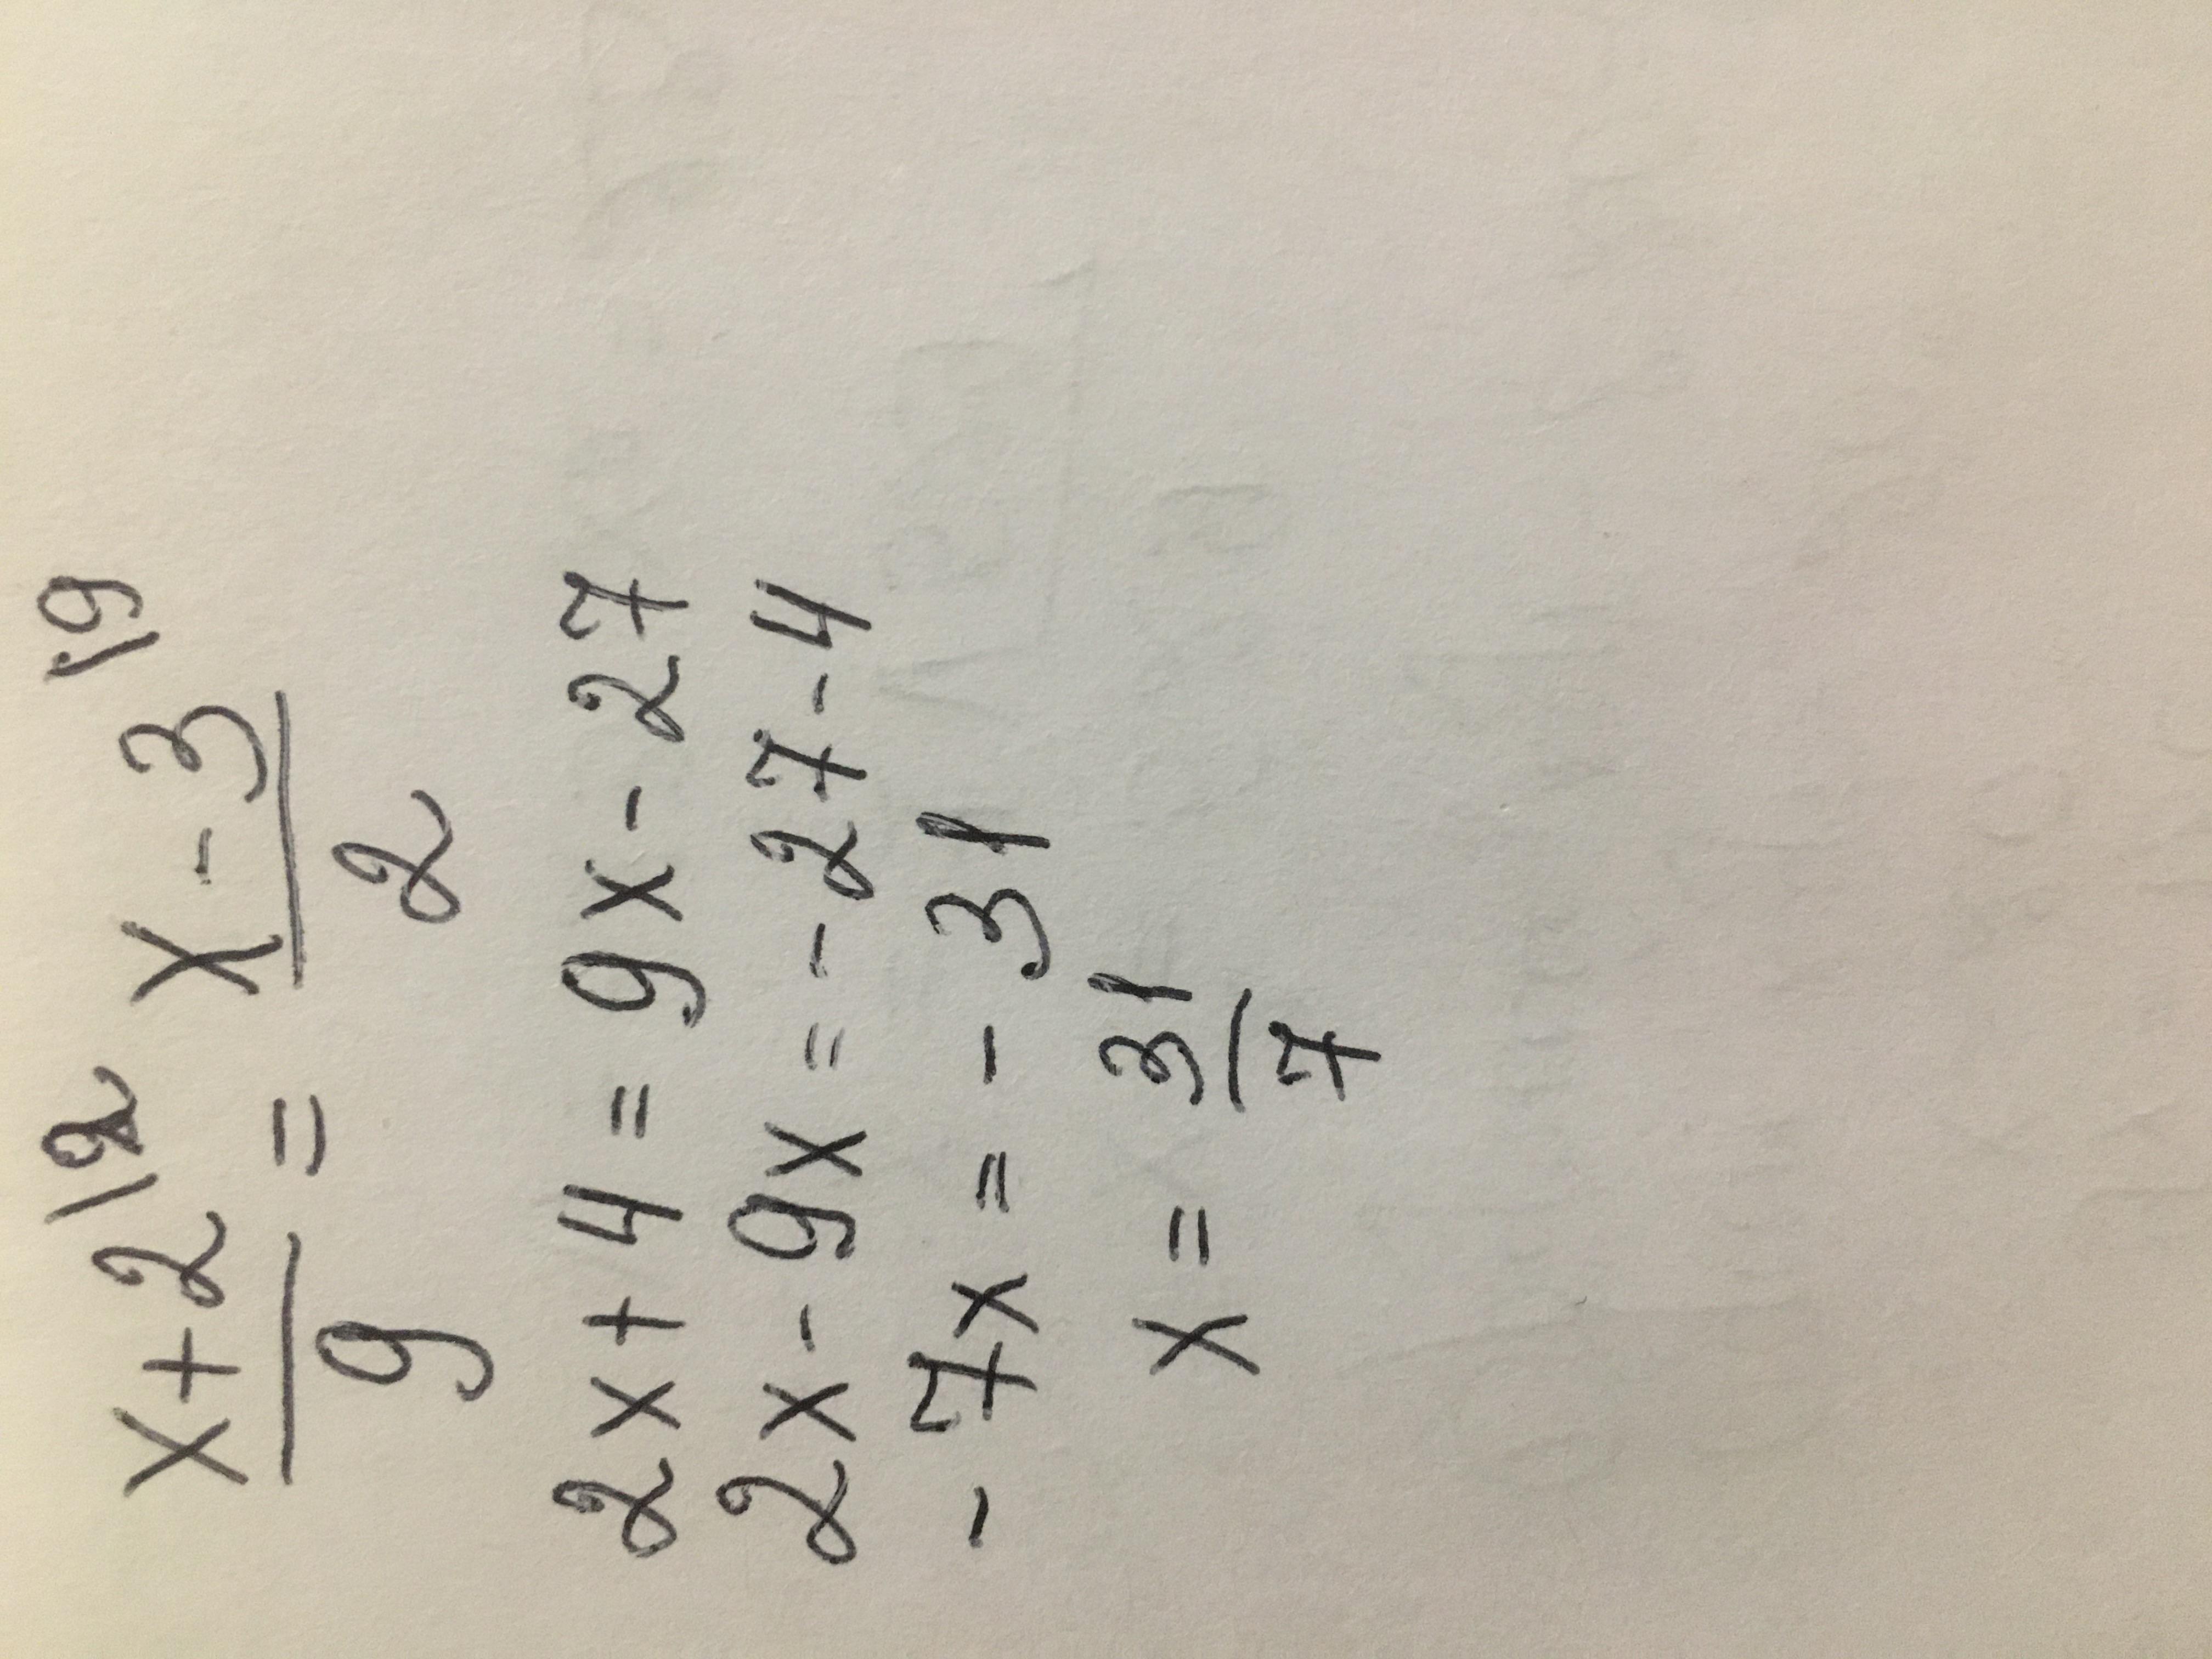 x+2\2 x-3\9
9 = 2
2x+4=9x-27
2x-9x=-27-4
-7x=-31
x=31/7